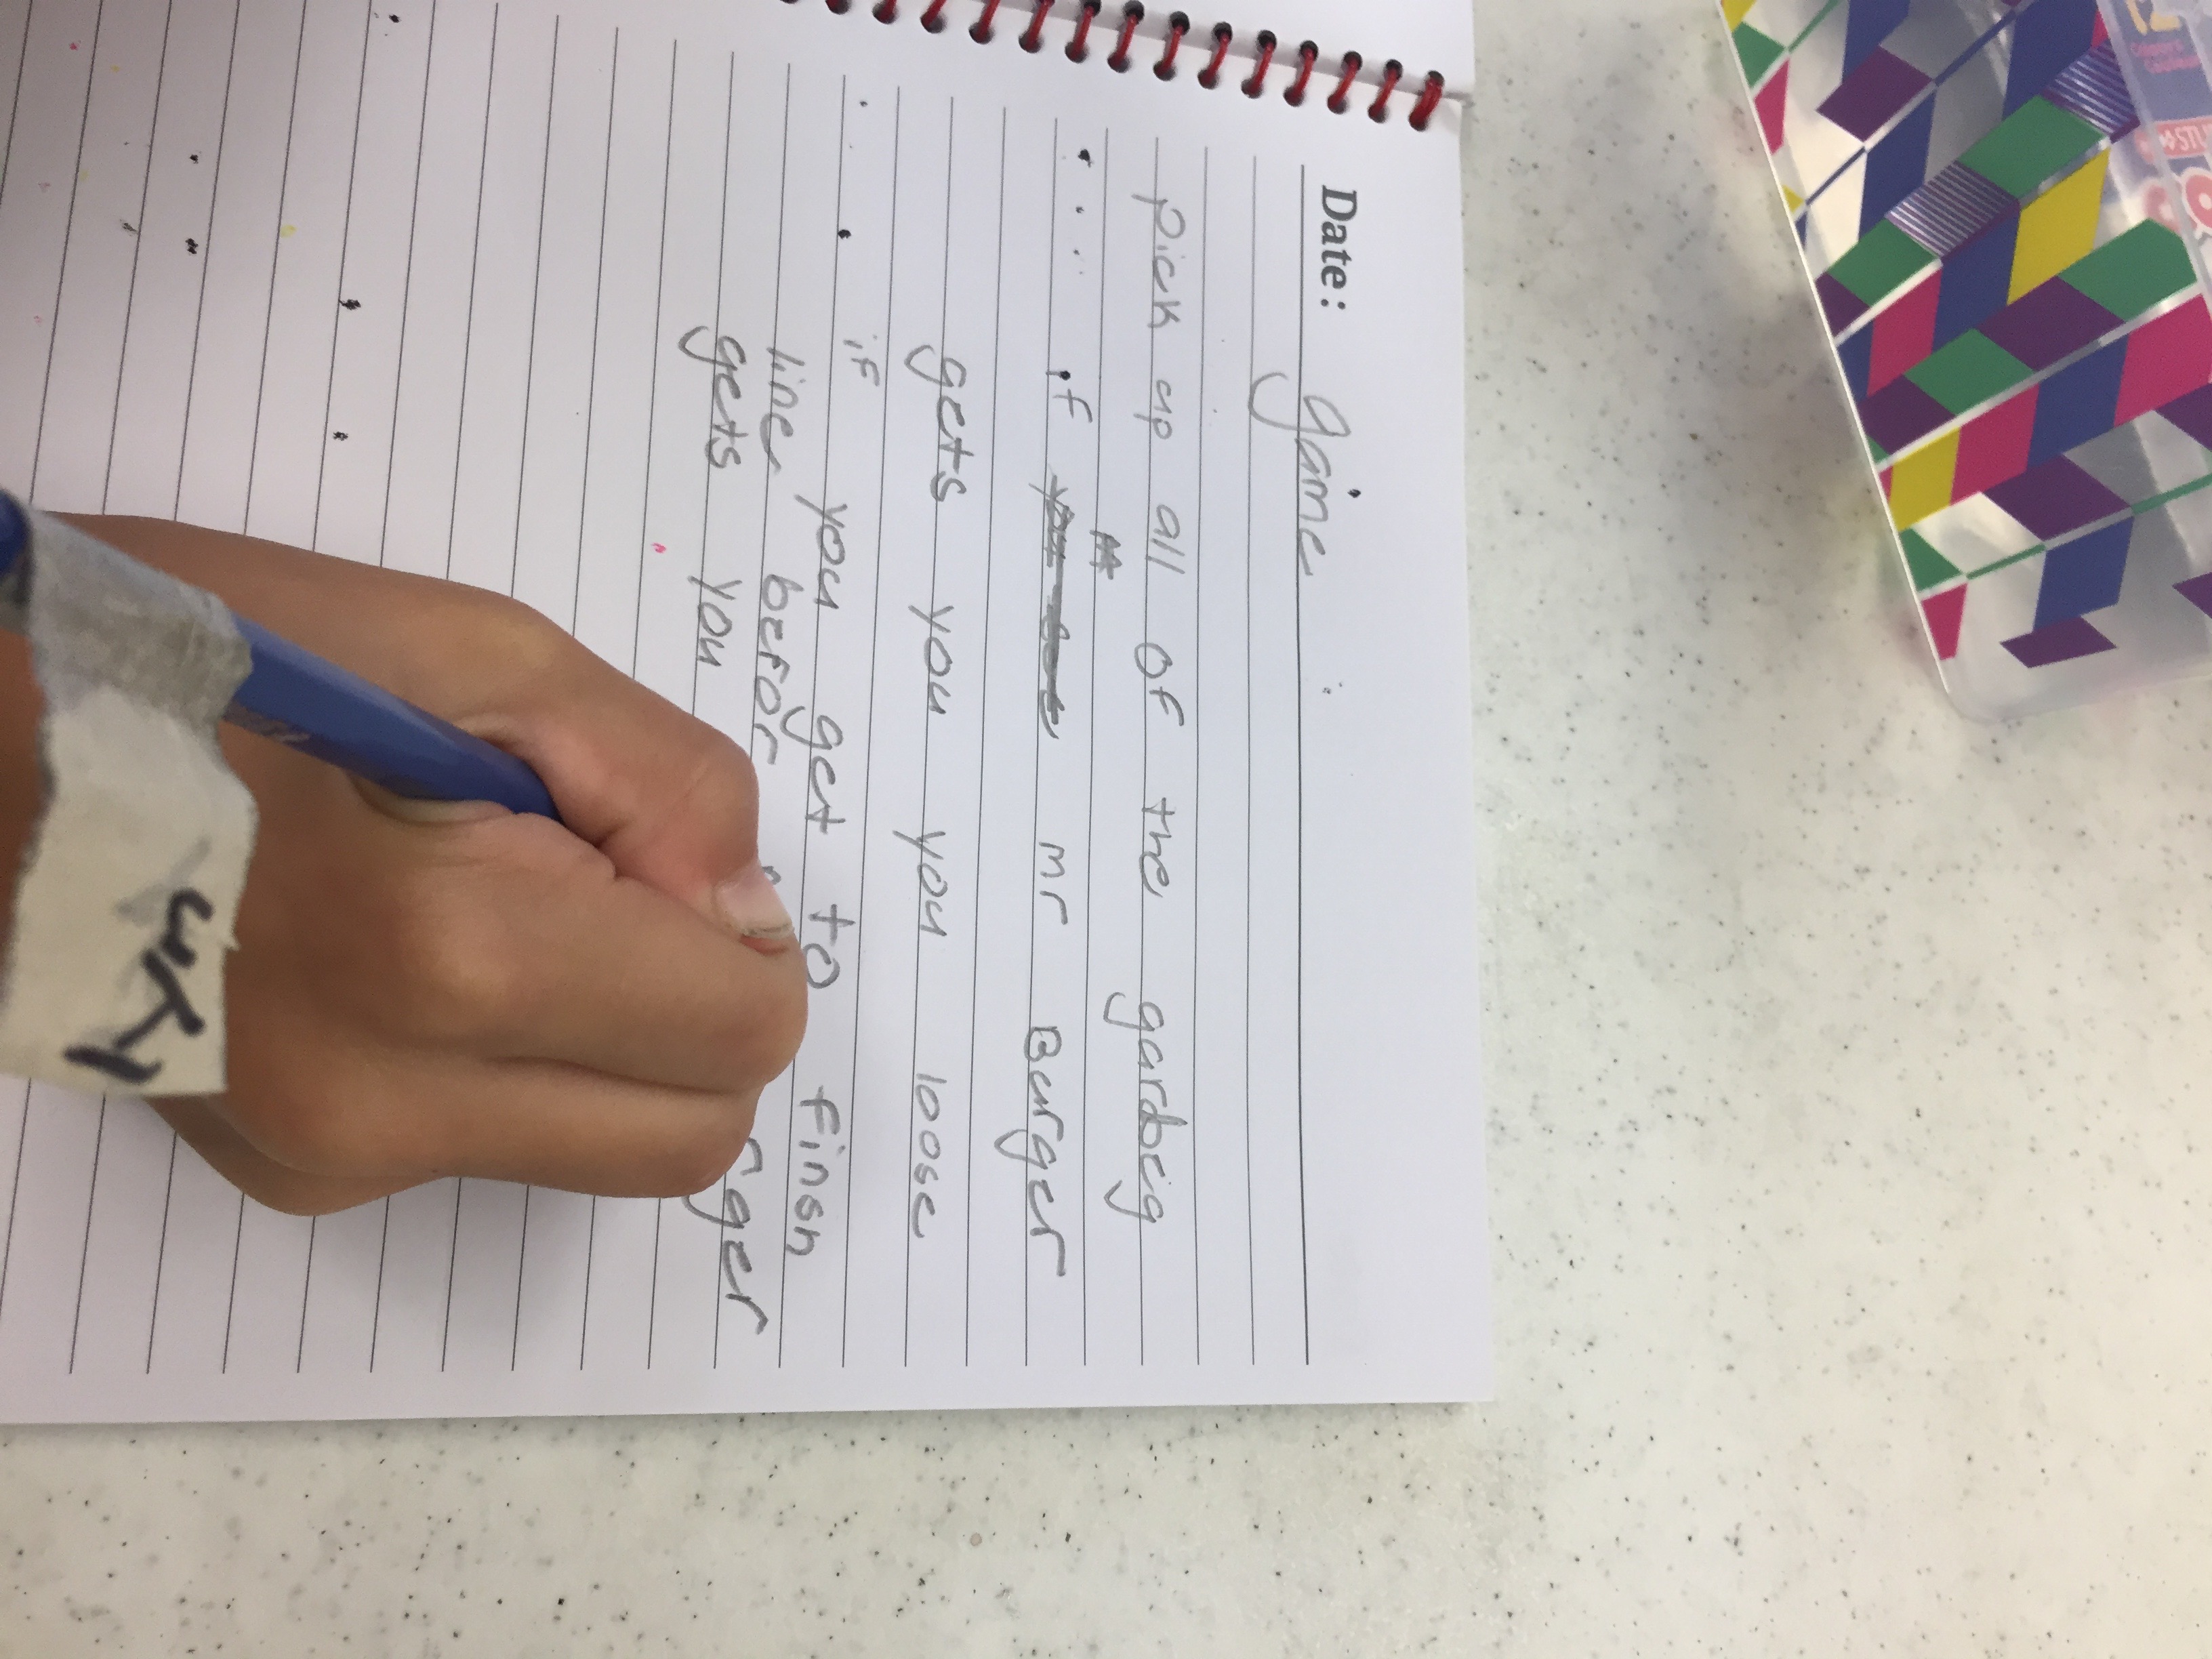 Date:
game
Pick up all of the garbeig
if mr Burger
gets you you loose
if you get to finsh
line befor
gets you